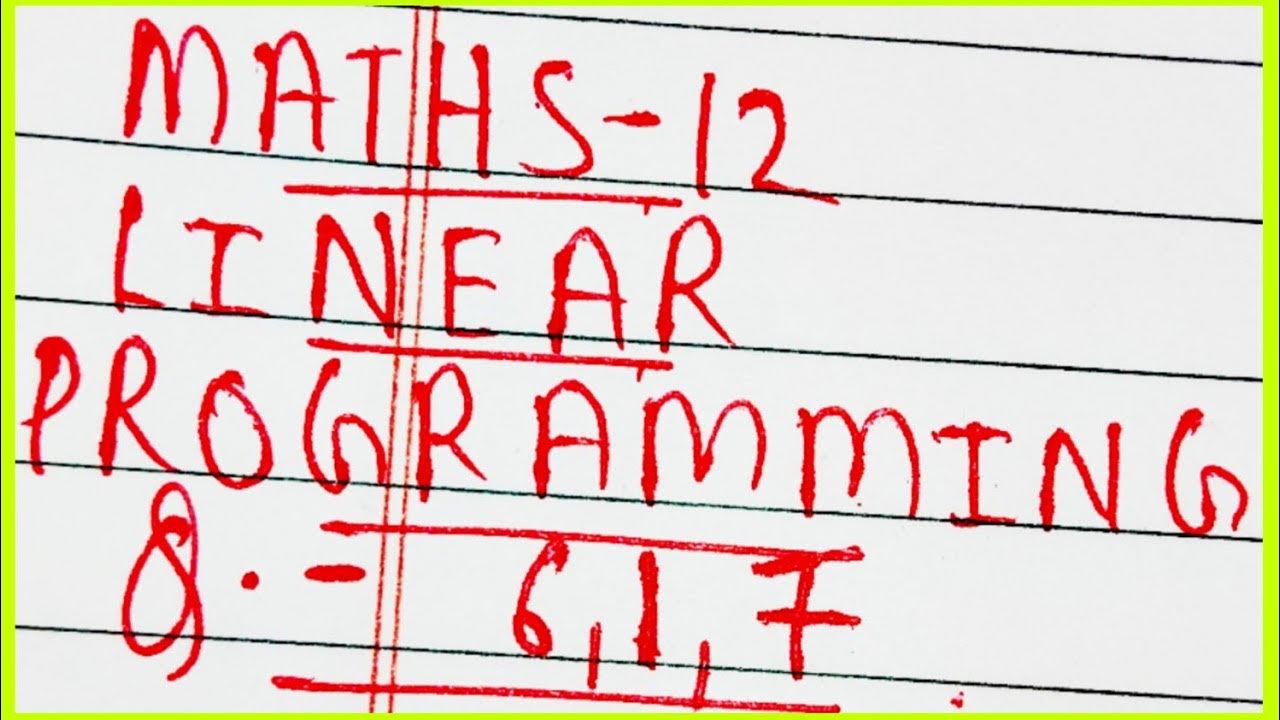 MATHS-12
LINEAR
PROGRAMMING
Q.- 6,1,7